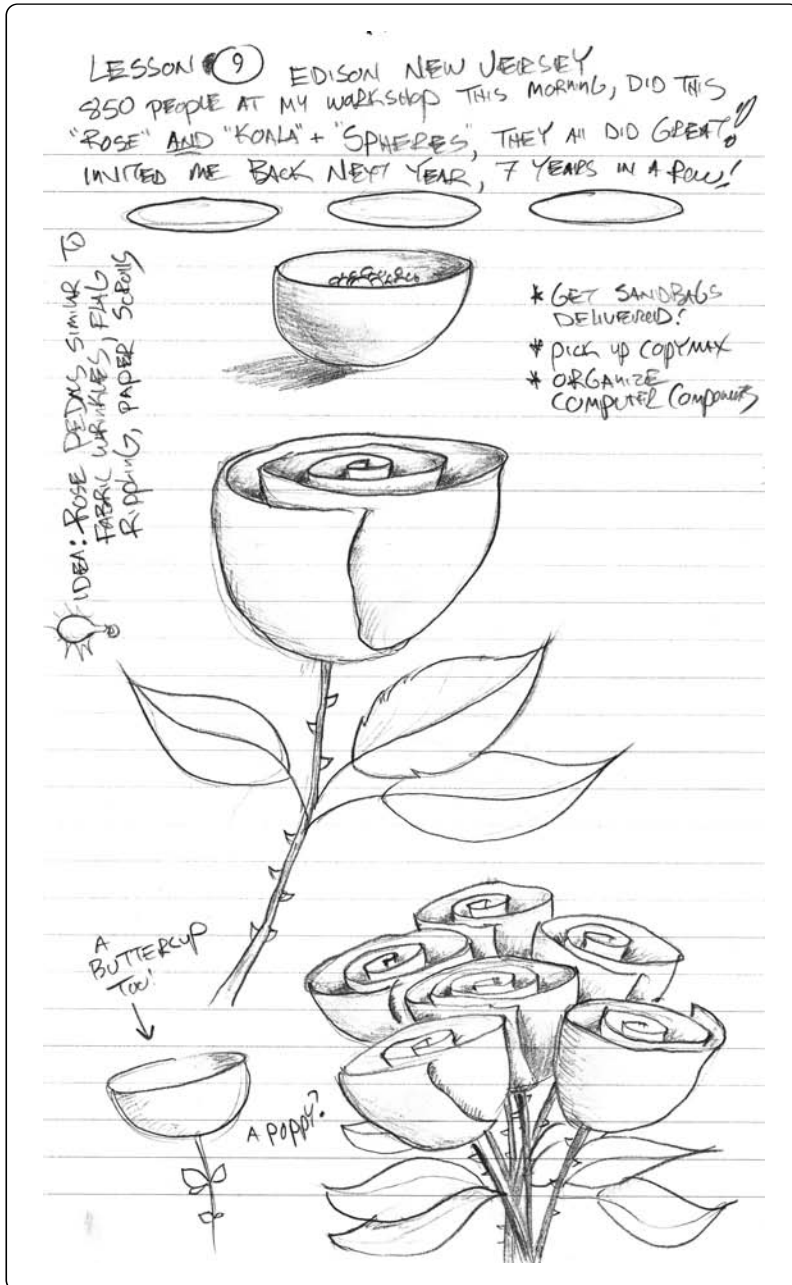 LESSON 9 EDISON NEW JERSEY
850 PEOPLE AT MY WORKSHOP THIS MORNING, DID THIS
"ROSE" AND "KOALA" + "SPHERES", THEY All DID GREAT!
INVITED ME BACK NEXT YEAR, 7 YEARS IN A ROW!
IDEA: ROSE PEDALS SIMILAR TO
FABRIC WRINKLES, FLAG
RIPPLING, PAPER SCROLLS
* GET SANDBAGS
DELIVERED!
* PICK UP COPYMAX
* ORGANIZE
COMPUTER COMPONENTS
A
BUTTERCUP
TOO!
A POPPY?